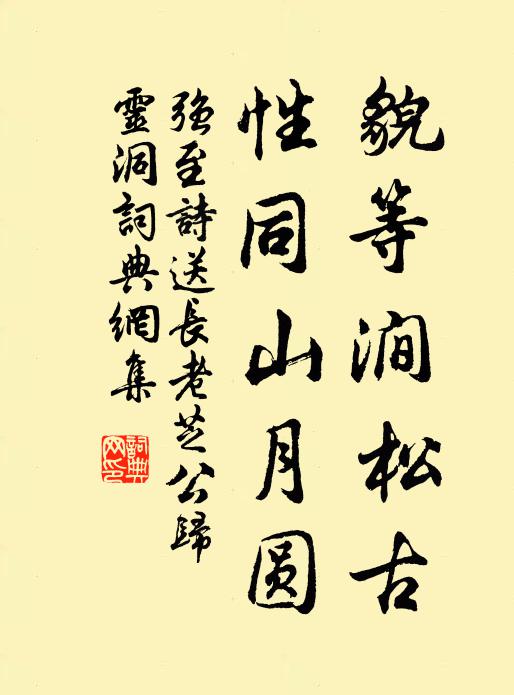 貌等澗松古
性同山月圆
強至詩送長老芝公歸
靈洞詞典網集
詞典
网印